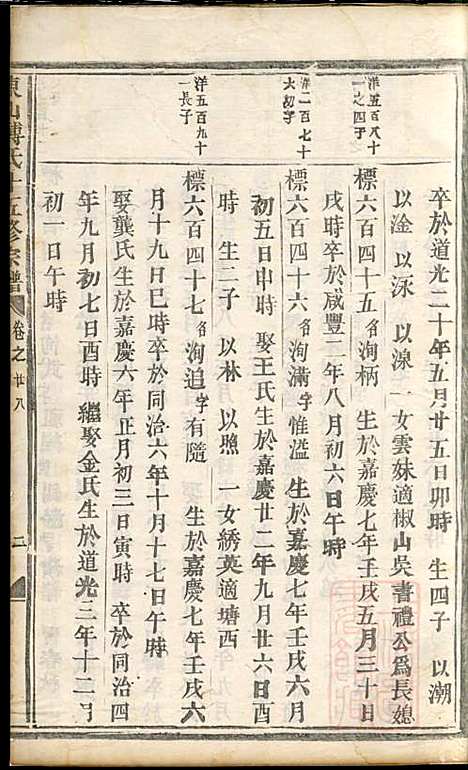 洋五百八十
一之四子
洋二百七十
大初字
洋五百九十
一長子
卒於道光二十年五月廿五日卯時 生四子 以潮
以淦 以泳 以湶 一女雲妹適椒山吳書禮公爲長媳
標六百四十五名洵柄 生於嘉慶七年壬戌五月三十日
戌時卒於咸豐二年八月初六日午時
標六百四十六名洵滿字惟溢 生於嘉慶七年壬戌六月
初五日申時 娶王氏生於嘉慶廿二年九月廿六日酉
時 生二子 以林 以煦 一女綉英適塘西
標六百四十七名洵追字有隨 生於嘉慶七年壬戌六
月十九日巳時卒於同治六年十月十七日午時
娶龔氏生於嘉慶六年正月初三日寅時 卒於同治四
年九月初七日酉時 繼娶金氏生於道光三年十二月
初一日午時
東山傅氏十五修宗譜 卷之廿八 二